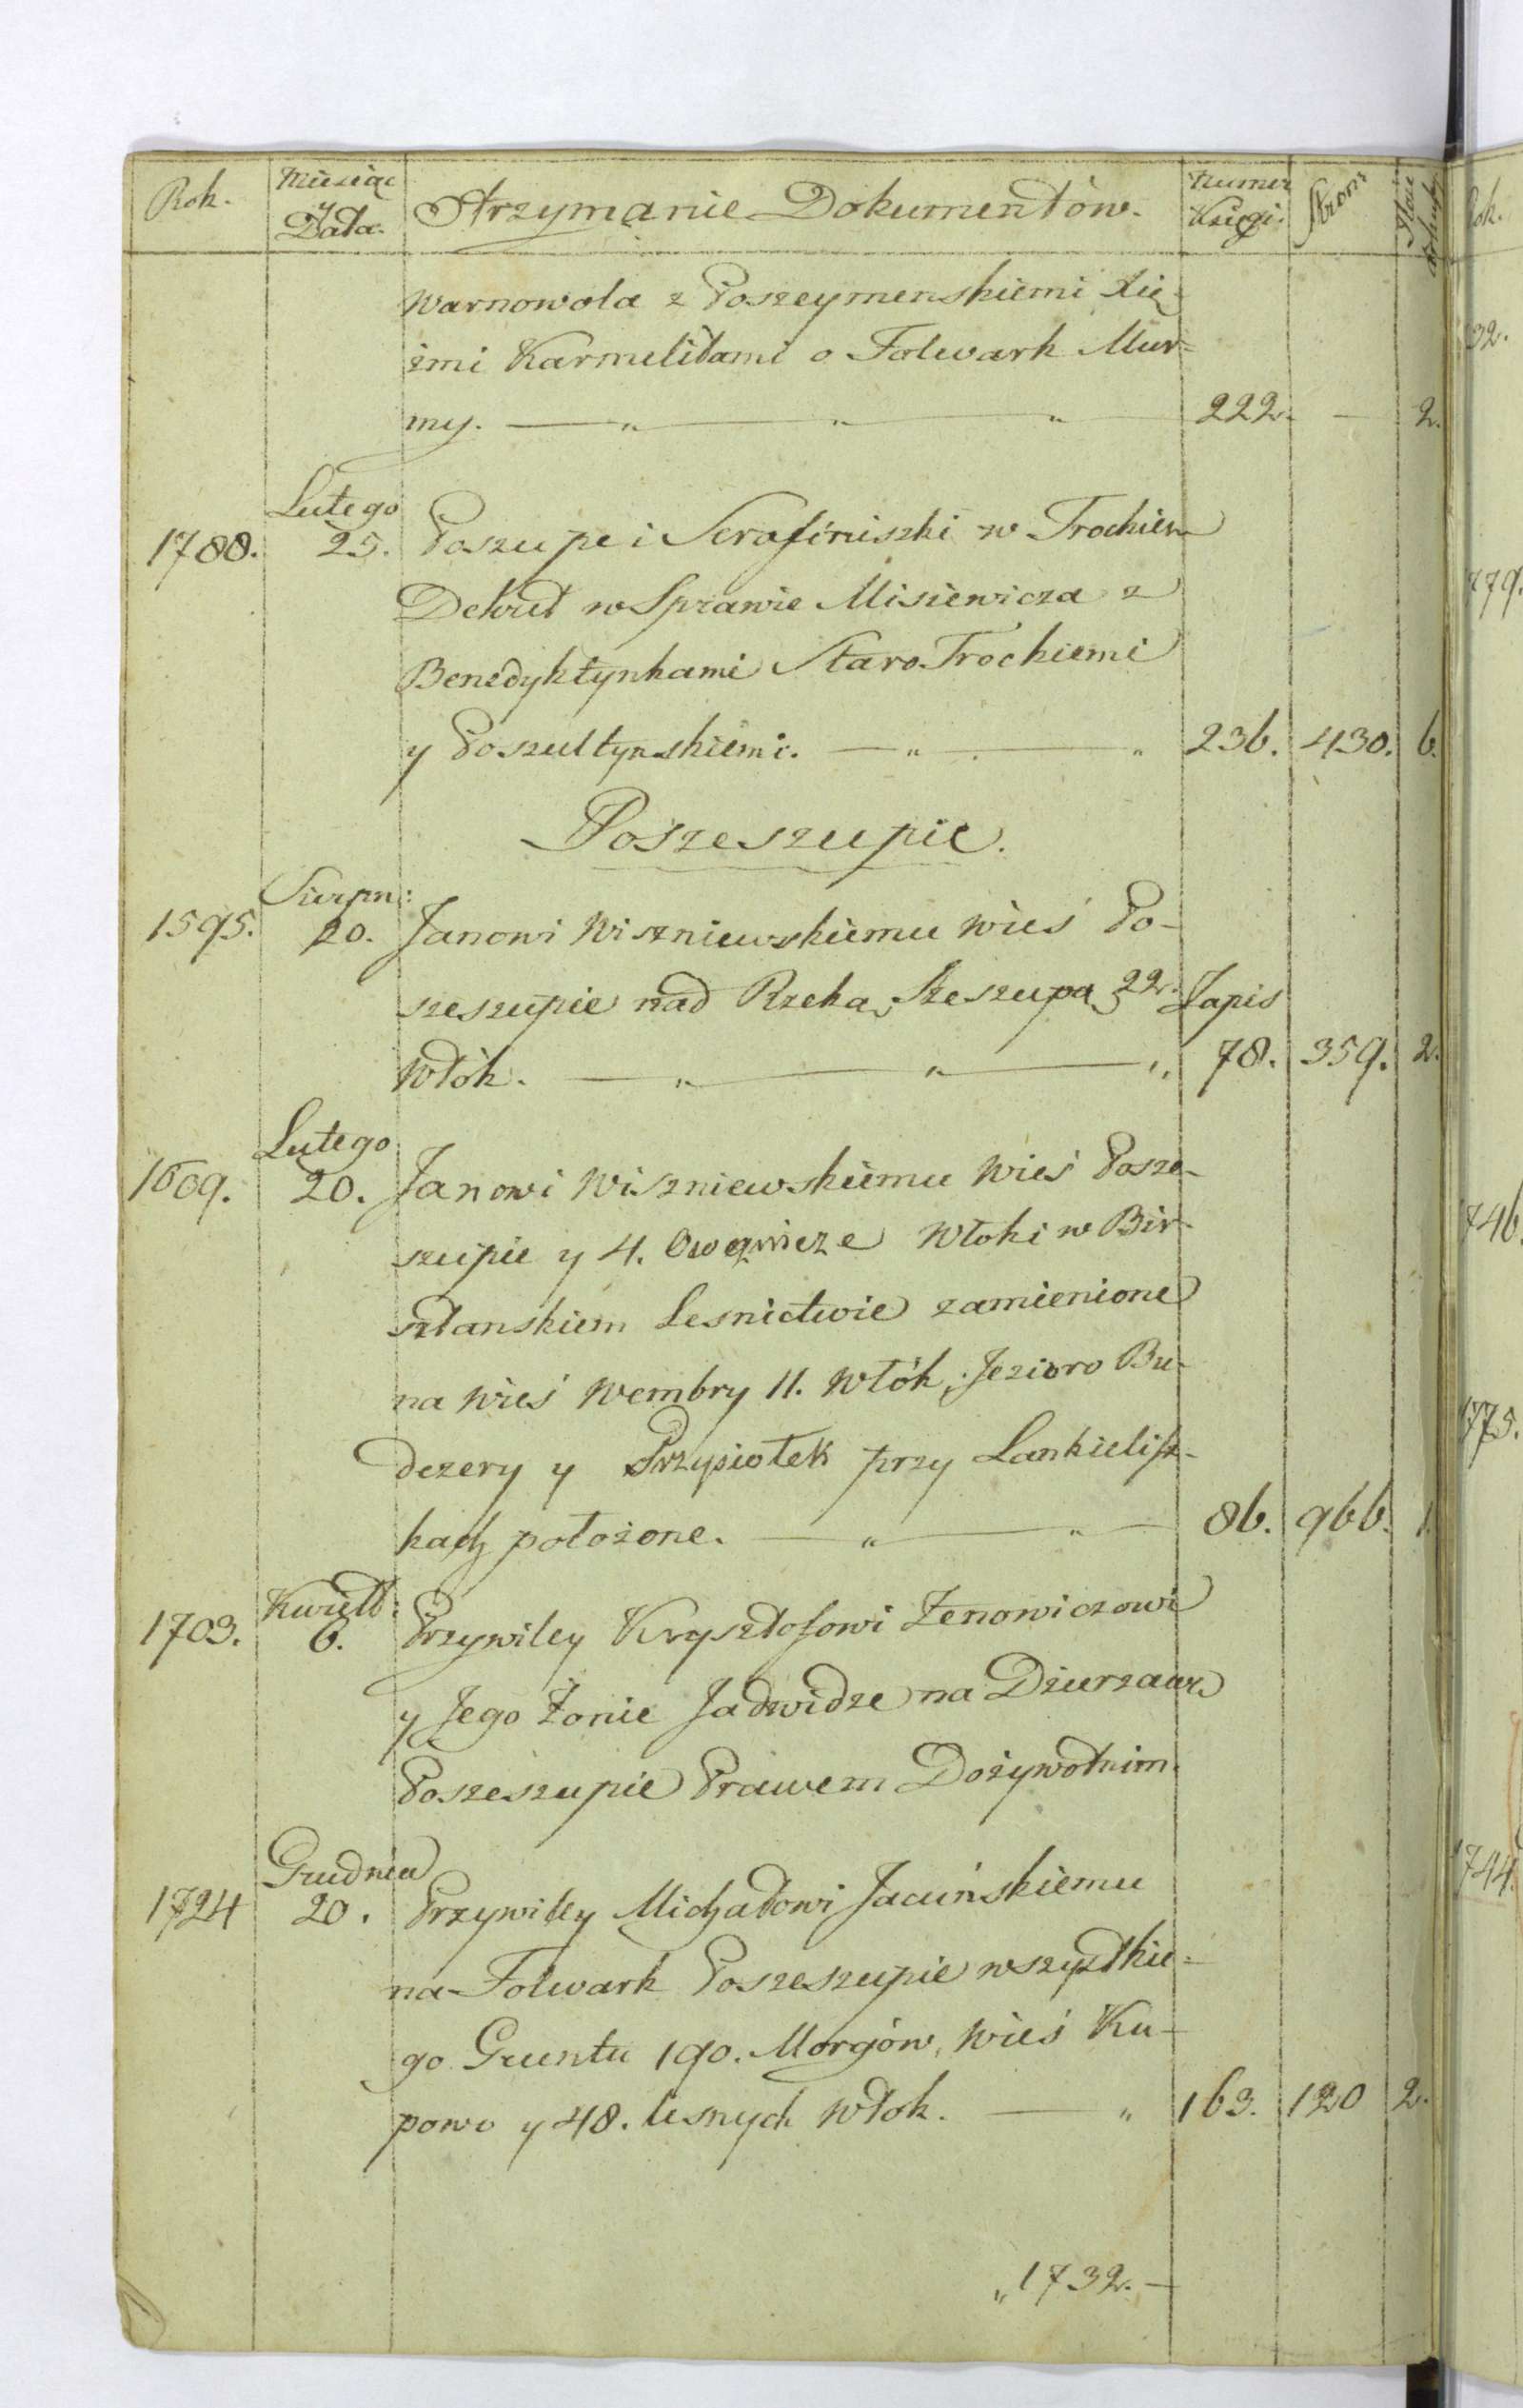 Rok. Miesiąc y Data. Otrzymanie Dokumentów. Numer Księgi. Stron: Ilość arkuszy
Warnowola z Poszeymenskiemi Xię-
żmi Karmelitami o Folwark Mur=
my. — „ — „ — „ 222. — 2.
Lutego
1788. 25. Poszupe i Serafiniszki w Trockiem
Dekret w Sprawie Misiewicza z
Benedyktynkami Staro Trockiemi
y Poszultynskiemi. — „ — „ 236. 430. 6.
Poszeszupie.
Sierpn:
1595. 20. Janowi Wiszniewskiemu wieś Po-
szeszupie nad Rzeką Szeszupą 22. Zapis
Włók. — „ — „ — „ 78. 359. 2.
Lutego
1609. 20. Janowi Wiszniewskiemu wieś Posze-
szupie y 4. Włoki w Bir-
sztanskiem Lesnictwie zamienione
na wieś Wembry 11. Włók, Jezioro Bu-
dezery y Przysiołek przy Lankielisz-
kach położone. — „ — „ — 86. 966. 1.
Kwiet:
1703. 6. Przywiley Krysztofowi Zenowiczowi
y Jego Żonie Jadwidze na Dzierzawę
Poszeszupie Prawem Dożywotnim.
Grudnia
1724 20. Przywiley Michałowi Jacuńskiemu
na Folwark Poszeszupie wszystkie=
go Gruntu 190. Morgów, wieś Ku-
powo y 48. lesnych Włok. — „ 163. 120 2.
„ 1732. —